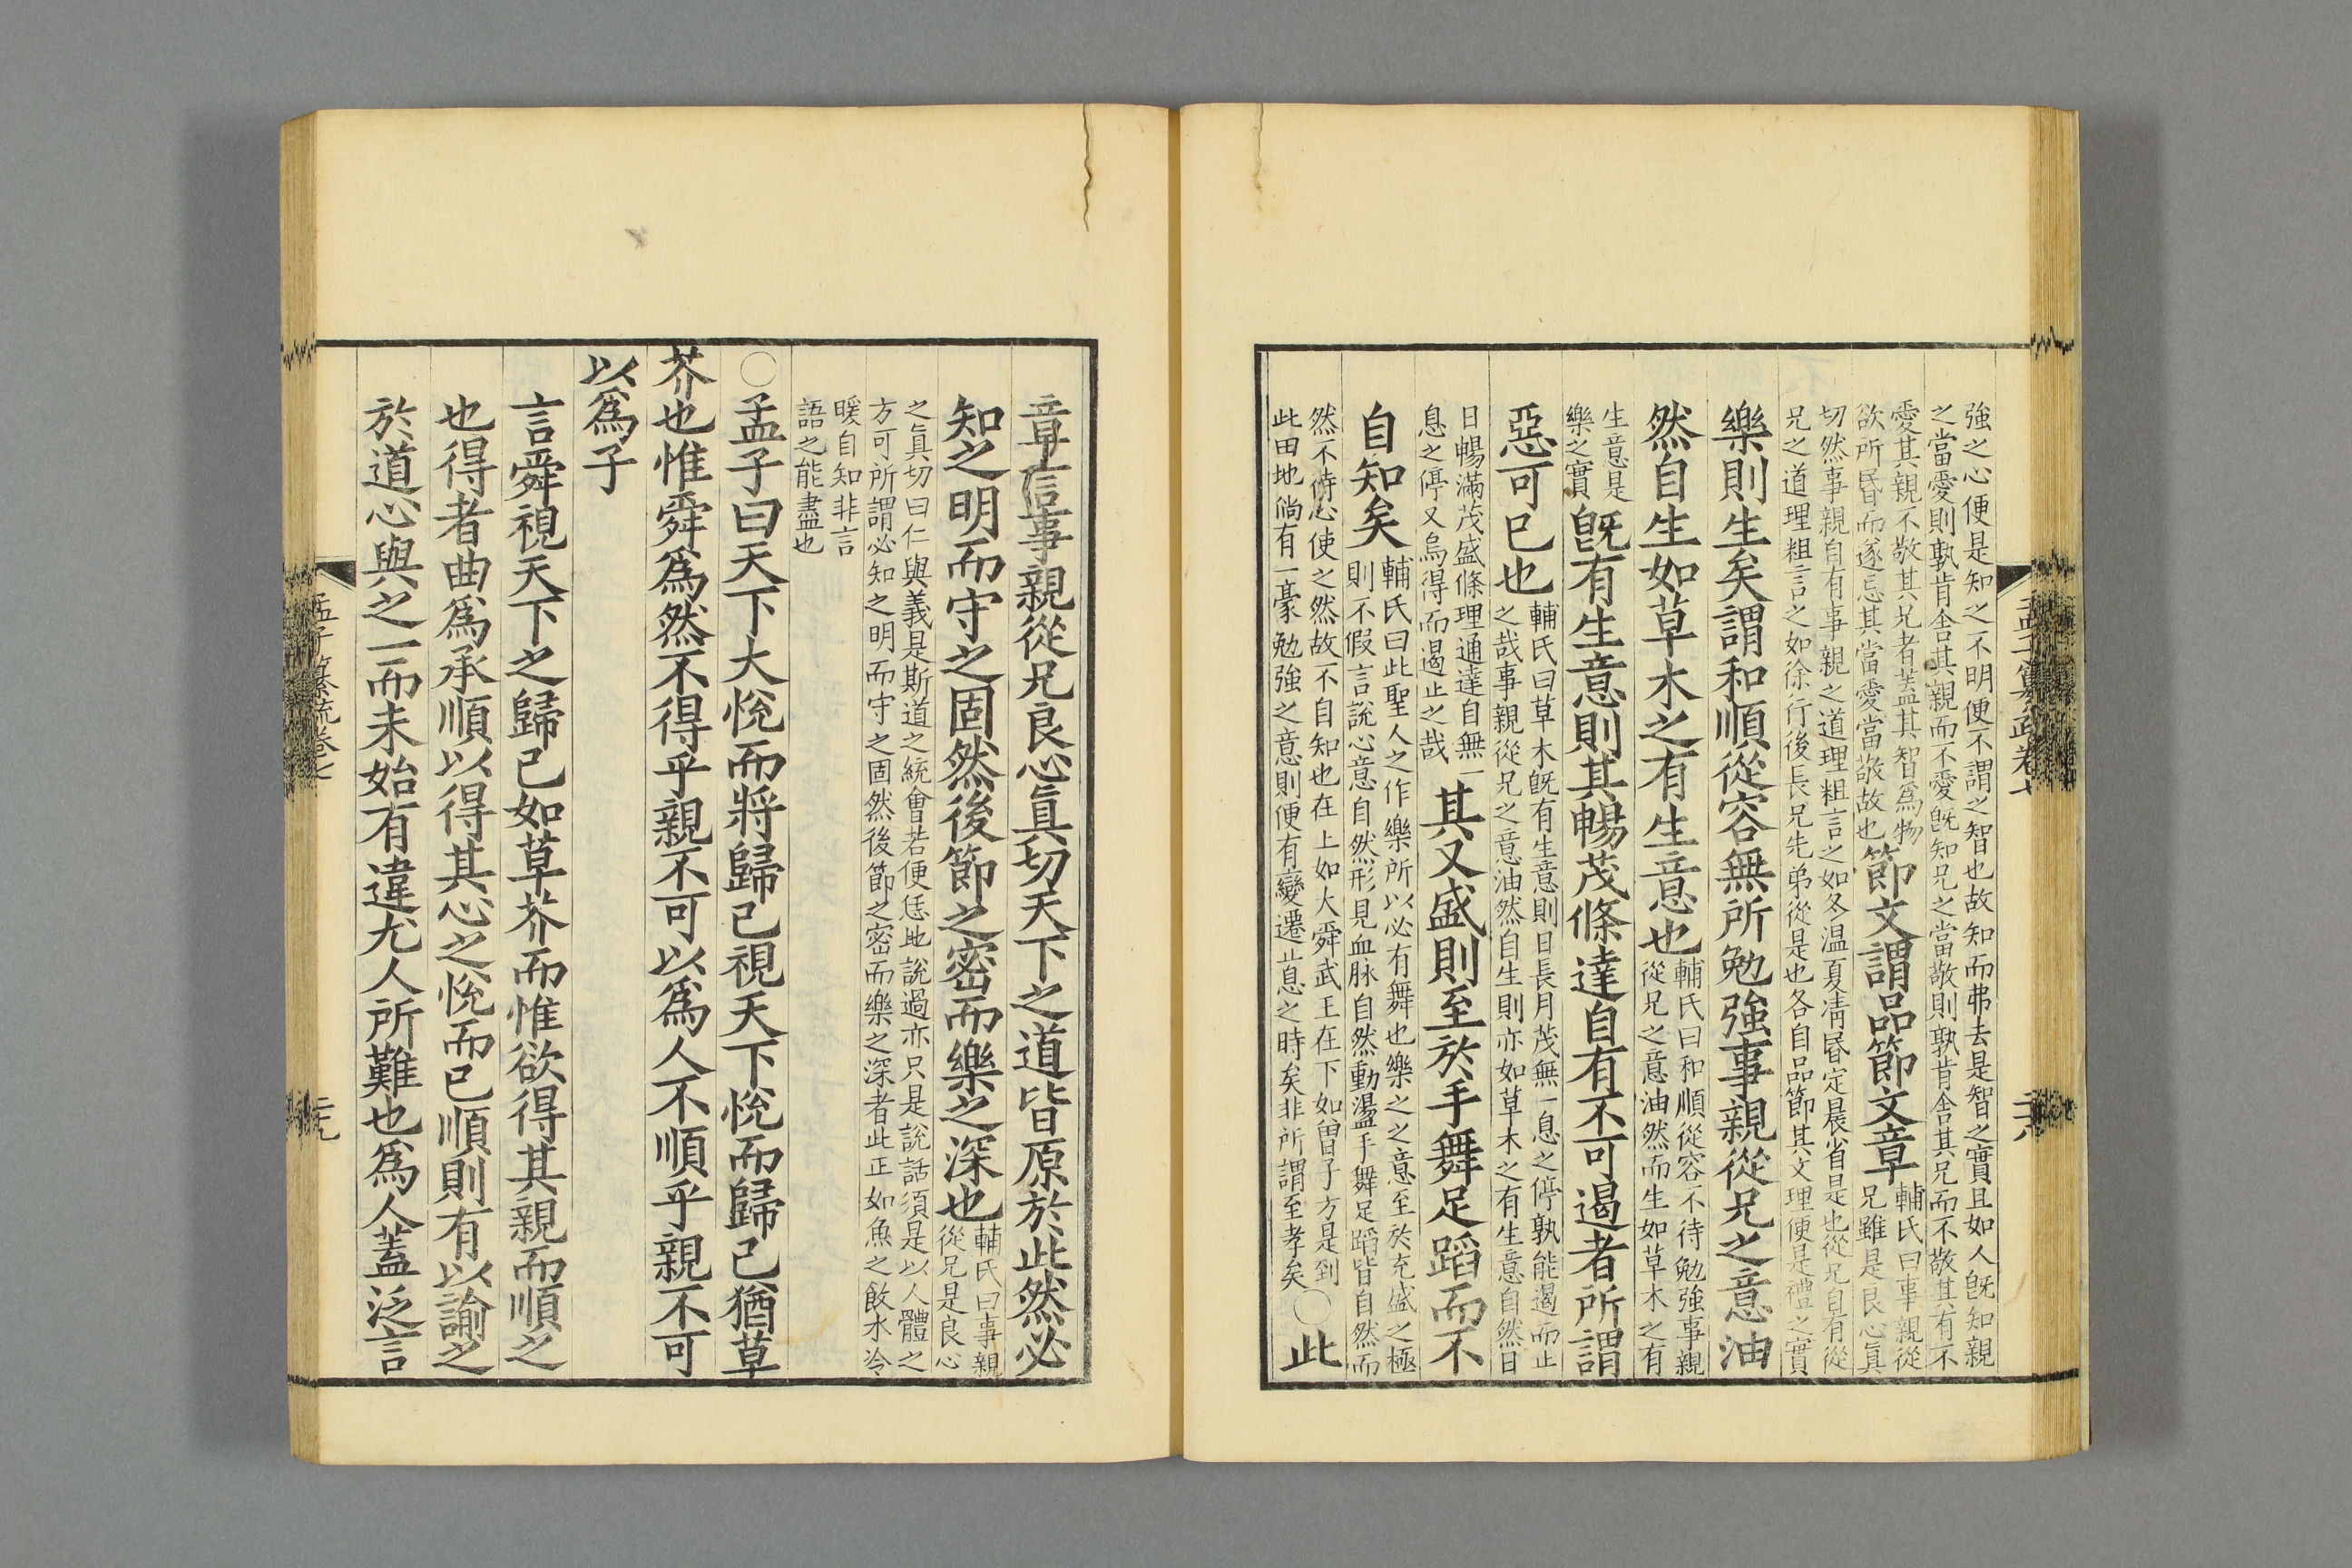 強之心便是知之不明便不謂之智也故知而弗去是智之實且如人旣知親
之當愛則孰肯舍其親而不愛旣知兄之當敬則孰肯舍其兄而不敬其有不
愛其親不敬其兄者蓋其智爲物
欲所昏而遂忘其當愛當敬故也
節文謂品節文章
輔氏曰事親從
兄雖是良心眞
切然事親自有事親之道理粗言之如冬温夏凊昏定晨省是也從兄自有從
兄之道理粗言之如徐行後長兄先弟從是也各自品節其文理便是禮之實
樂則生矣謂和順從容無所勉強事親從兄之意油
然自生如草木之有生意也
輔氏曰和順從容不待勉強事親
從兄之意油然而生如草木之有
生意是
樂之實
旣有生意則其暢茂條達自有不可遏者所謂
惡可已也
輔氏曰草木旣有生意則日長月茂無一息之停孰能遏而止
之哉事親從兄之意油然自生則亦如草木之有生意自然日
日暢滿茂盛條理通達自無一
息之停又烏得而遏止之哉
其又盛則至於手舞足蹈而不
自知矣
輔氏曰此聖人之作樂所以必有舞也樂之之意至於充盛之極
則不假言說心意自然形見血脉自然動盪手舞足蹈皆自然而
然不待心使之然故不自知也在上如大舜武王在下如曾子方是到
此田地倘有一豪勉強之意則便有變遷止息之時矣非所謂至孝矣
○此
孟子纂疏卷七
二十八
章言事親從兄良心眞切天下之道皆原於此然必
知之明而守之固然後節之密而樂之深也
輔氏曰事親
從兄是良心
之眞切曰仁與義是斯道之統會若便恁地說過亦只是說話須是以人體之
方可所謂必知之明而守之固然後節之密而樂之深者此正如魚之飲水冷
暖自知非言
語之能盡也
○孟子曰天下大悅而將歸已視天下悅而歸已猶草
芥也惟舜爲然不得乎親不可以爲人不順乎親不可
以爲子
言舜視天下之歸已如草芥而惟欲得其親而順之
也得者曲爲承順以得其心之悅而已順則有以諭之
於道心與之一而未始有違尤人所難也爲人蓋泛言
孟子纂疏卷七
二十九